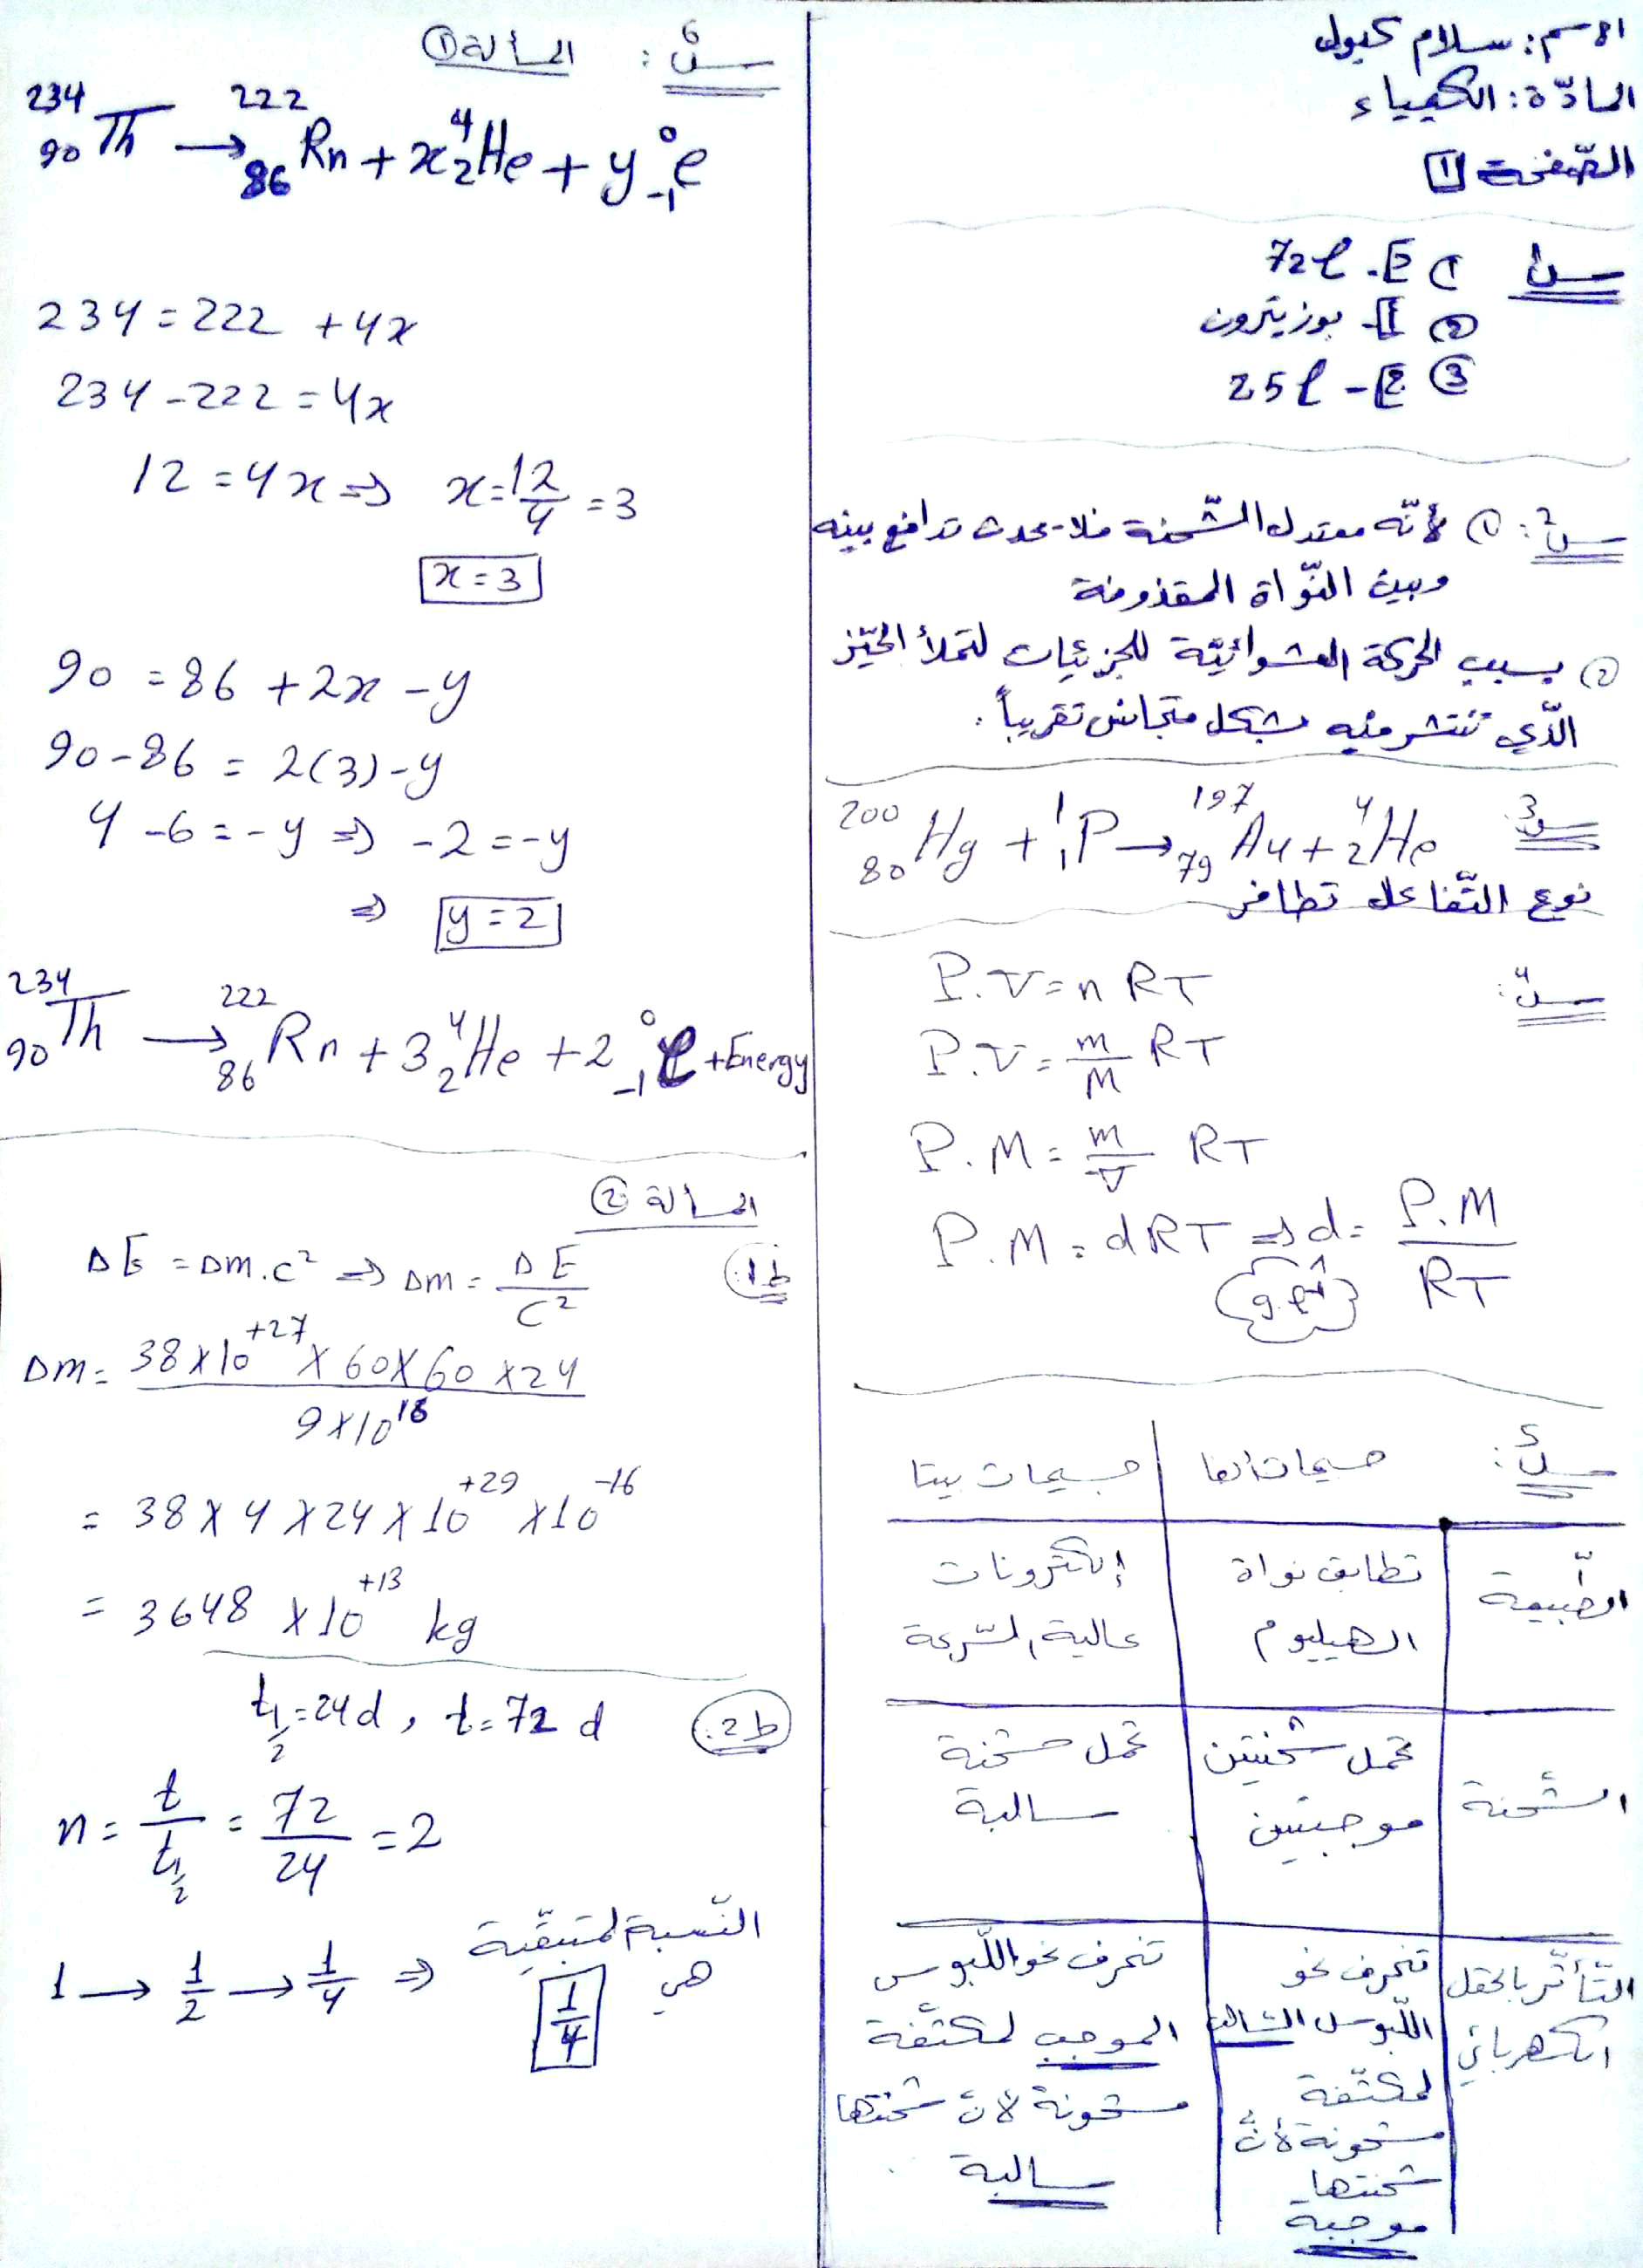 الاسم: سلام كبول
المادّة: الكيمياء
الصّفحة 1
س1
1) 5- 72 l
2) 1- بوزيترون
3) 2- 25 l
س2: 1) لأنّه معتدل الشّحنة فلا يحدث تدافع بينه
وبين النّواة المقذوفة
2) بسبب الحركة العشوائيّة للجزيئات لتملأ الحيّز
الّذي تنتشر فيه بشكل متجانس تقريباً.
س3
²⁰⁰₈₀Hg + ¹₁P → ¹⁹⁷₇₉Au + ⁴₂He
نوع التّفاعل تطافر
س4:
P.V = n RT
P.V = m/M RT
P.M = m/V RT
P.M = dRT ⇒ d = P.M/RT
g.l⁻¹
س5:
جسيمات ألفا جسيمات بيتا
الطّبيعة تطابق نواة الهيليوم إلكترونات عالية السّرعة
الشّحنة تحمل شحنتين موجبتين تحمل شحنة سالبة
التّأثّر بالحقل الكهربائي تنحرف نحو اللّبوس السّالب لمكثّفة مشحونة لأنّ شحنتها موجبة تنحرف نحو اللّبوس الموجب لمكثّفة مشحونة لأنّ شحنتها سالبة
س6: المسألة 1
²³⁴₉₀Th → ²²²₈₆Rn + x⁴₂He + y⁰₋₁e
234 = 222 + 4x
234 - 222 = 4x
12 = 4x ⇒ x = 12/4 = 3
x = 3
90 = 86 + 2x - y
90 - 86 = 2(3) - y
4 - 6 = -y ⇒ -2 = -y
⇒ y = 2
²³⁴₉₀Th → ²²²₈₆Rn + 3⁴₂He + 2⁰₋₁e + Energy
المسألة 2
ط1:
ΔE = Δm.c² ⇒ Δm = ΔE/C²
Δm = 38×10⁺²⁷ × 60 × 60 × 24 / 9×10¹⁶
= 38 × 4 × 24 × 10⁺²⁹ × 10⁻¹⁶
= 3648 × 10⁺¹³ kg
ط2:
t½ = 24d , t = 72 d
n = t/t½ = 72/24 = 2
1 → 1/2 → 1/4 ⇒ النّسبة المتبقّية
هي 1/4